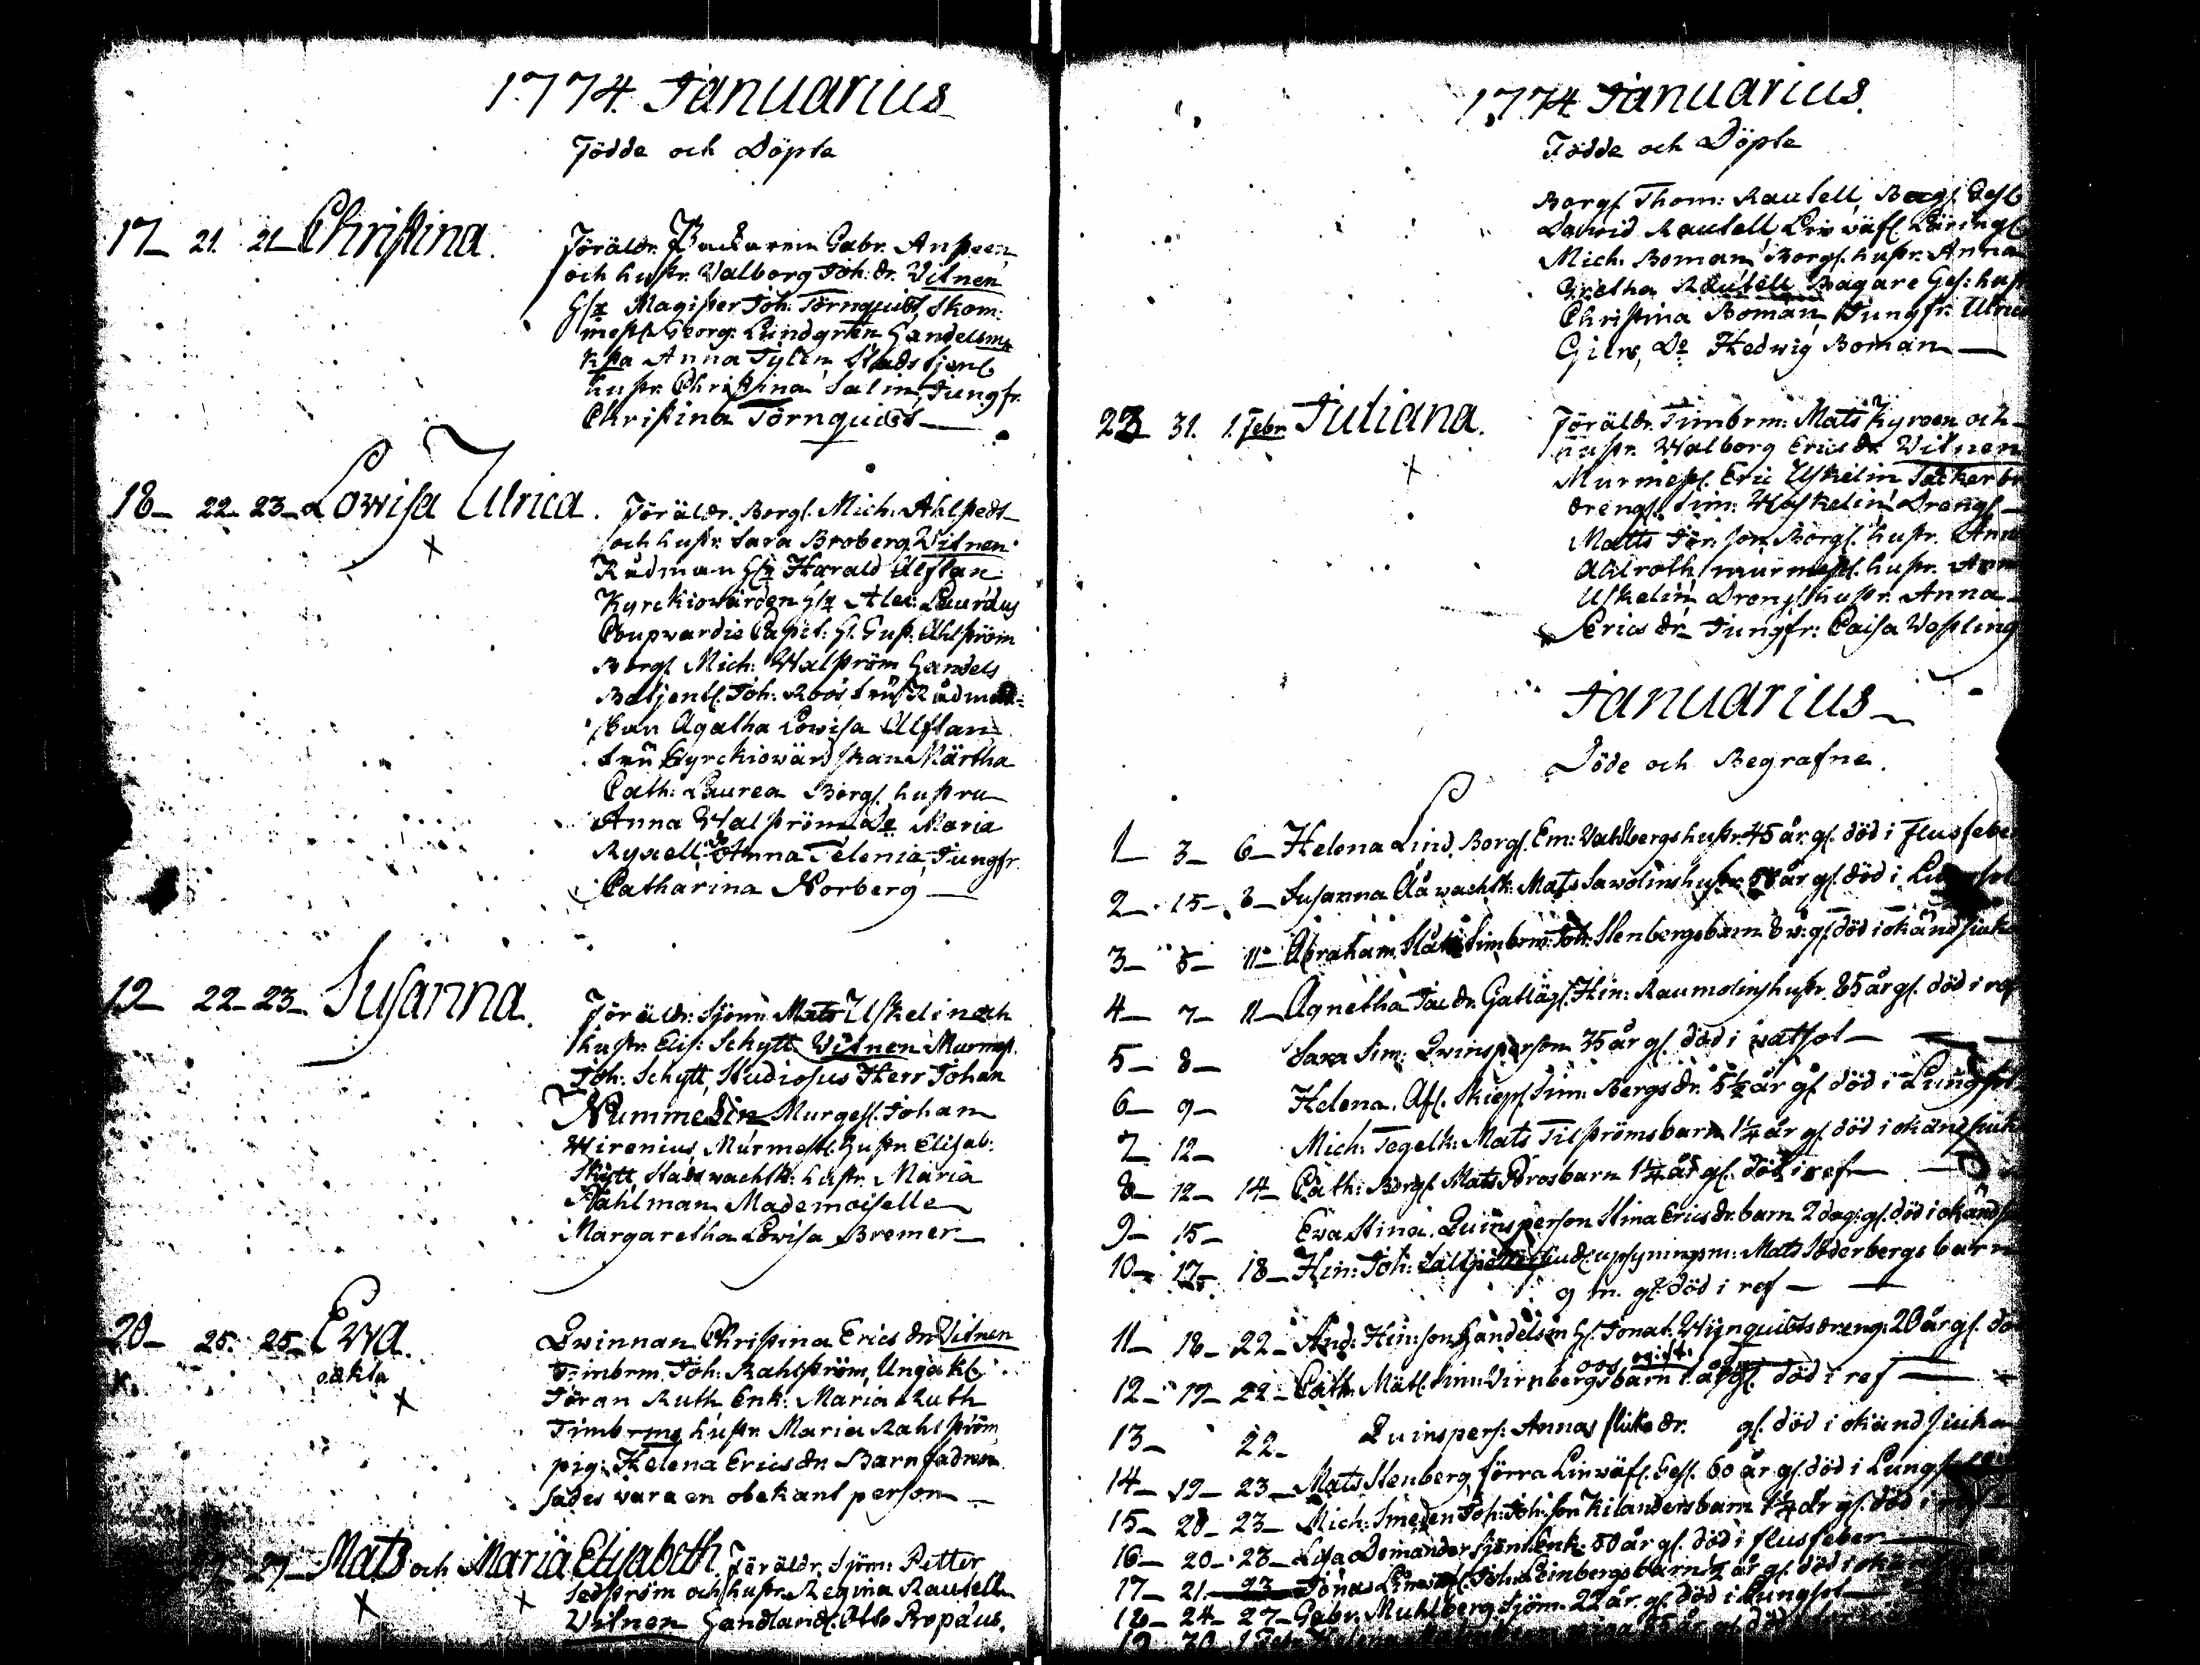 1774. Januarius
Födde och Döpte
17 21. 21 Christina. Föräldr. Backaren Gabr. Ansteen
och hustr. Walborg Joh: dr. Vitnen
Magister Joh: Törnquist, Skom:
mest. Georg: Lindgren Handelsm
Anna Tylen Stads tjenl
hustr. Christina Salin, Jungfr.
Christina Törnquist
18 22 23 Lowisa Ulrica. Föräldr. Borgl. Mich: Ahlstedt
och hustr. Sara Broberg Vitnen
Rådman Harald Alftan
Kyrckiowärden Alex: Lauræus
Coupvardie Capit: H. Gust. Ahlström
Borgl Mich: Walström Handels
Betjent. Joh: Roos, fru Rådman
skan Agatha Lowisa Alftan
fru Kyrckiowärdskan Märtha
Cath: Laurea Borgl. hustru
Anna Walström Maria
Ryxell, Anna Telenia, Jungfr.
Catharina Norberg
19 22 23 Susanna. Föräldr. Sjöm: Mats Uskelin och
hustr. Elis: Schytt Vitnen Murmest.
Joh: Schytt, Studiosus Herr Johan
Nummelin Murges. Johan
Wirenius, Murmest. hustr. Elisab:
Skytt, Stads wachtk: hustr. Maria
Stahlman Mademoiselle
Margaretha Lowisa Bremer
20 25. 25 Ewa. Qwinnan Christina Erics dr. Vitnen
oäkta Timbrm. Joh: Rahlström, Unga kl
Jöran Ruth Enk: Maria Ruth
Timbrms hustr. Maria Rahlström
pig: Helena Erics dr. Barnfadren
sades wara en obekant person
27 Mats och Maria Elisabeth. Föräldr. Sjöm: Petter
Sedström och hustr. Regina Rautell
Vitnen Handland. Otto Propæus,
1774 Januarius.
Födde och Döpte
Borgl Thom: Rautell, Borgl. Gesl
David Rautell Linwäfl. Läringl
Mich: Boman, Borgl. hustr. Anna
Gretha Rautell Bagare Ges: hust
Christina Boman Jungfr: Ulrica
Giers, Do Hedwig Boman
23 31. 1. Febr. Juliana. Föräldr. Timbrm: Mats Kyreen och
hustr. Walborg Erics dr. Vitnen
Murmest. Eric Uskelin Såcker br
drengl. Sim: Uskelin Drengl
Matts Jör: son Borgl. hustr. Ann
Ahlroth murmest. hustr. Ann
Uskelin Drengl hustr. Anna
Erics dr. Jungfr: Caisa Wesling
Januarius
Döde och Begrafne.
1 3 6 Helena Lind, Borgl. Em: Wahlbergs hustr. 45 år gl. död i flusfeber
2 15 8 Susanna wachtk: Mats Sawolins hustr. 58 år gl. död i
3 5 11 Abraham Timbrm: Joh: Stenbergs barn 8 w: gl. död i okänd siukd
4 7 11 Agnetha Jac dr. Hin: Raumolins hustr. 85 år gl. död i ref
5 8 Sara Sim: Qwinsperson 35 år gl. död i watsot
6 9 Helena. Afl. Skiepl Sim: Bergs dr. 5½ år gl. död i Lungsot
7 12 Mich: Tegelk: Mats Tilströms barn 1¼ år gl. död i okänd siuk
8 12 14 Cath: Borgl. Mats barn 1¼ år gl. död i ref
9 15 Ewa Stina. Quinsperson Stina Erics dr. barn 2 dag: gl. död i okänd
10 17 18 Hin: Joh: upsyningsm: Mats Söderbergs barn
9 m. gl. död i ref
11 18 22 And: Hin: son Handelsm H. Jonat: Wijnquists dreng: 20 år gl. dö
ogift
12 19 22 Cath. Mätl. Sim: Dirnbergs barn 1 år gl. död i ref
13 22 Quinspers: Annas dr. gl. död i okänd siukd
14 19 23 Mats Stenberg förra Linwäfl. Gesl. 60 år gl. död i Lungsot
15 20 23 Mich: Smeden Joh: Joh: son Kilanders barn 1¼ år gl. död i
16 20 23 Lisa Demander Sjöm Enk: 50 år gl. död i flusfeber
17 21 23 Jonas Joh: Leinbergs barn ½ år gl. död i
18 24 27 Gabr. Muhlberg Sjöm. 22 år. gl. död i Lungsot
19 30 1 Febr Helena